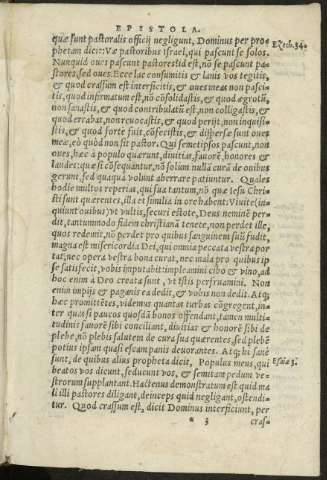 EPISTOLA.
quæ sunt pastoralis officij negligunt, Dominus per pro=
phetam dicit: Væ pastoribus Israel, qui pascunt se solos.
Ezech. 34.
Nunquid oues pascunt pastores? id est, nõ se pascunt pa=
stores, sed oues. Ecce lac consumitis & lanis vos tegitis,
& quod crassum est interficitis, & oues meas non pasci=
tis, quod infirmatum est, nõ cõsolidastis, & quod ægrotũ,
non sanastis, & quod contribulatũ est, non colligastis, &
quod errabat, non reuocastis, & quod perijt, non inquisi=
stis, & quod forte fuit, cõfecistis, & dispersæ sunt oues
meæ, eò quòd non sit pastor. Qui semetipsos pascunt, non
oues, hæc à populo quærunt, diuitias, fauorẽ, honores &
laudes: quæ si cõsequantur, nõ solùm nulla curã de onibus
gerunt, sed quaqua volunt aberrare patiuntur. Quales
hodie multos reperias, qui sua tantum, nõ quæ Iesu Chri=
sti sunt quærentes, illa et similia in ore habent: Viuite (in=
quiunt ouibus) vt vultis, securi estote, Deus neminẽ per=
dit, tantummodo fidem christianã tenete, non perdet ille,
quos redemit, nõ perdet pro quibus sanguinem suũ fudit,
magna est misericordia Dei, qui omnia peccata vestra por
tat, nec opera vestra bona curat, nec mala pro quibus ip
se satisfecit, vobis imputabit: implemini cibo & vino, ad
hoc enim à Deo creata sunt, vt istis perfruamini. Non
enim impijs & paganis ea dedit, & vobis non dedit. Atq;
hæc promittẽtes, videmus quantas turbas cõgregent, in=
ter quas si paucos quosdã bonos offendant, tamen multi=
tudinis fauorẽ sibi conciliant, diuitias & honorẽ sibi de
plebe, nõ plebis salutem de cura sua quærentes, sed plebẽ
potius ipsam quasi escam panis deuorantes. Atq; hi sanè
sunt, de quibus alius propheta dicit, Populus meus, qui
Esaiæ 3.
beatos vos dicunt, seducunt vos, & semitam pedum ve=
strorum supplantant. Hactenus demonstratum est quid ma
li illi pastores diligant, deinceps quid negligant, ostendi=
tur. Quod crassum est, dicit Dominus interficiunt, per
* 3 cras=